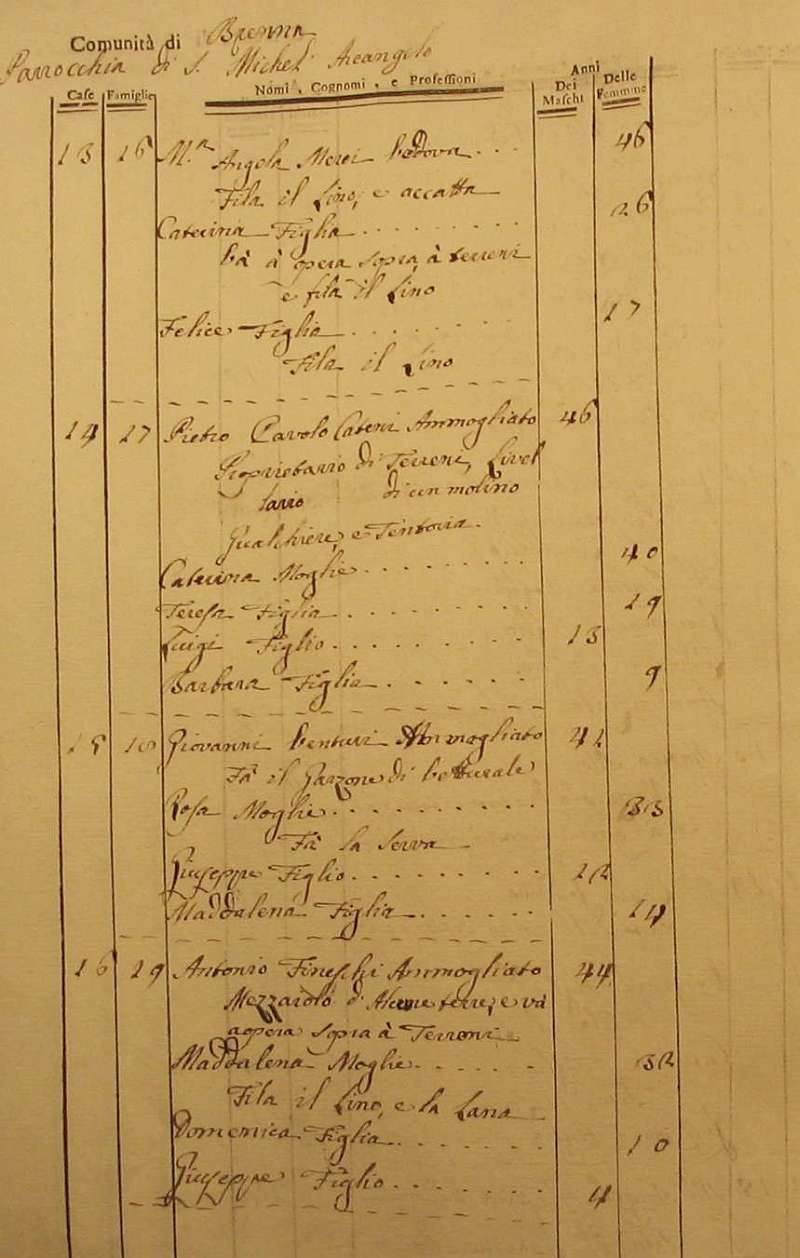 Comunità di Brenna
Parrocchia di S. Michel Arcangelo
Case Famiglie Nomi, Cognomi, e Professioni Anni Dei Maschi Delle Femmine
13 16 M.a Angola Vedova 46
Fila il lino, e accatta
Caterina Figlia 26
Và a opera sopra à terreni
e fila il lino
Felice Figlia 17
Fila il lino
14 17 Pietro Carlo Ammogliato 46
Proprietario di Terreni, Livel
lario di un molino
Gualchiera, e Tintoria
Caterina Moglie 40
Teresa Figlia 19
Luigi Figlio 13
Barbara Figlia 9
15 18 Giovanni Venturi Ammogliato 41
Fà il Garzone di Vetturale
Rosa Moglie 33
Fà la Serva
Giuseppe Figlio 12
Maddalena Figlia 14
16 19 Antonio Fineschi Ammogliato 44
Mezzaiolo e và
a opera sopra à Terreni
Maddalena Moglie 32
Fila il lino, e la lana
Domenica Figlia 10
Giuseppe Figlio 4